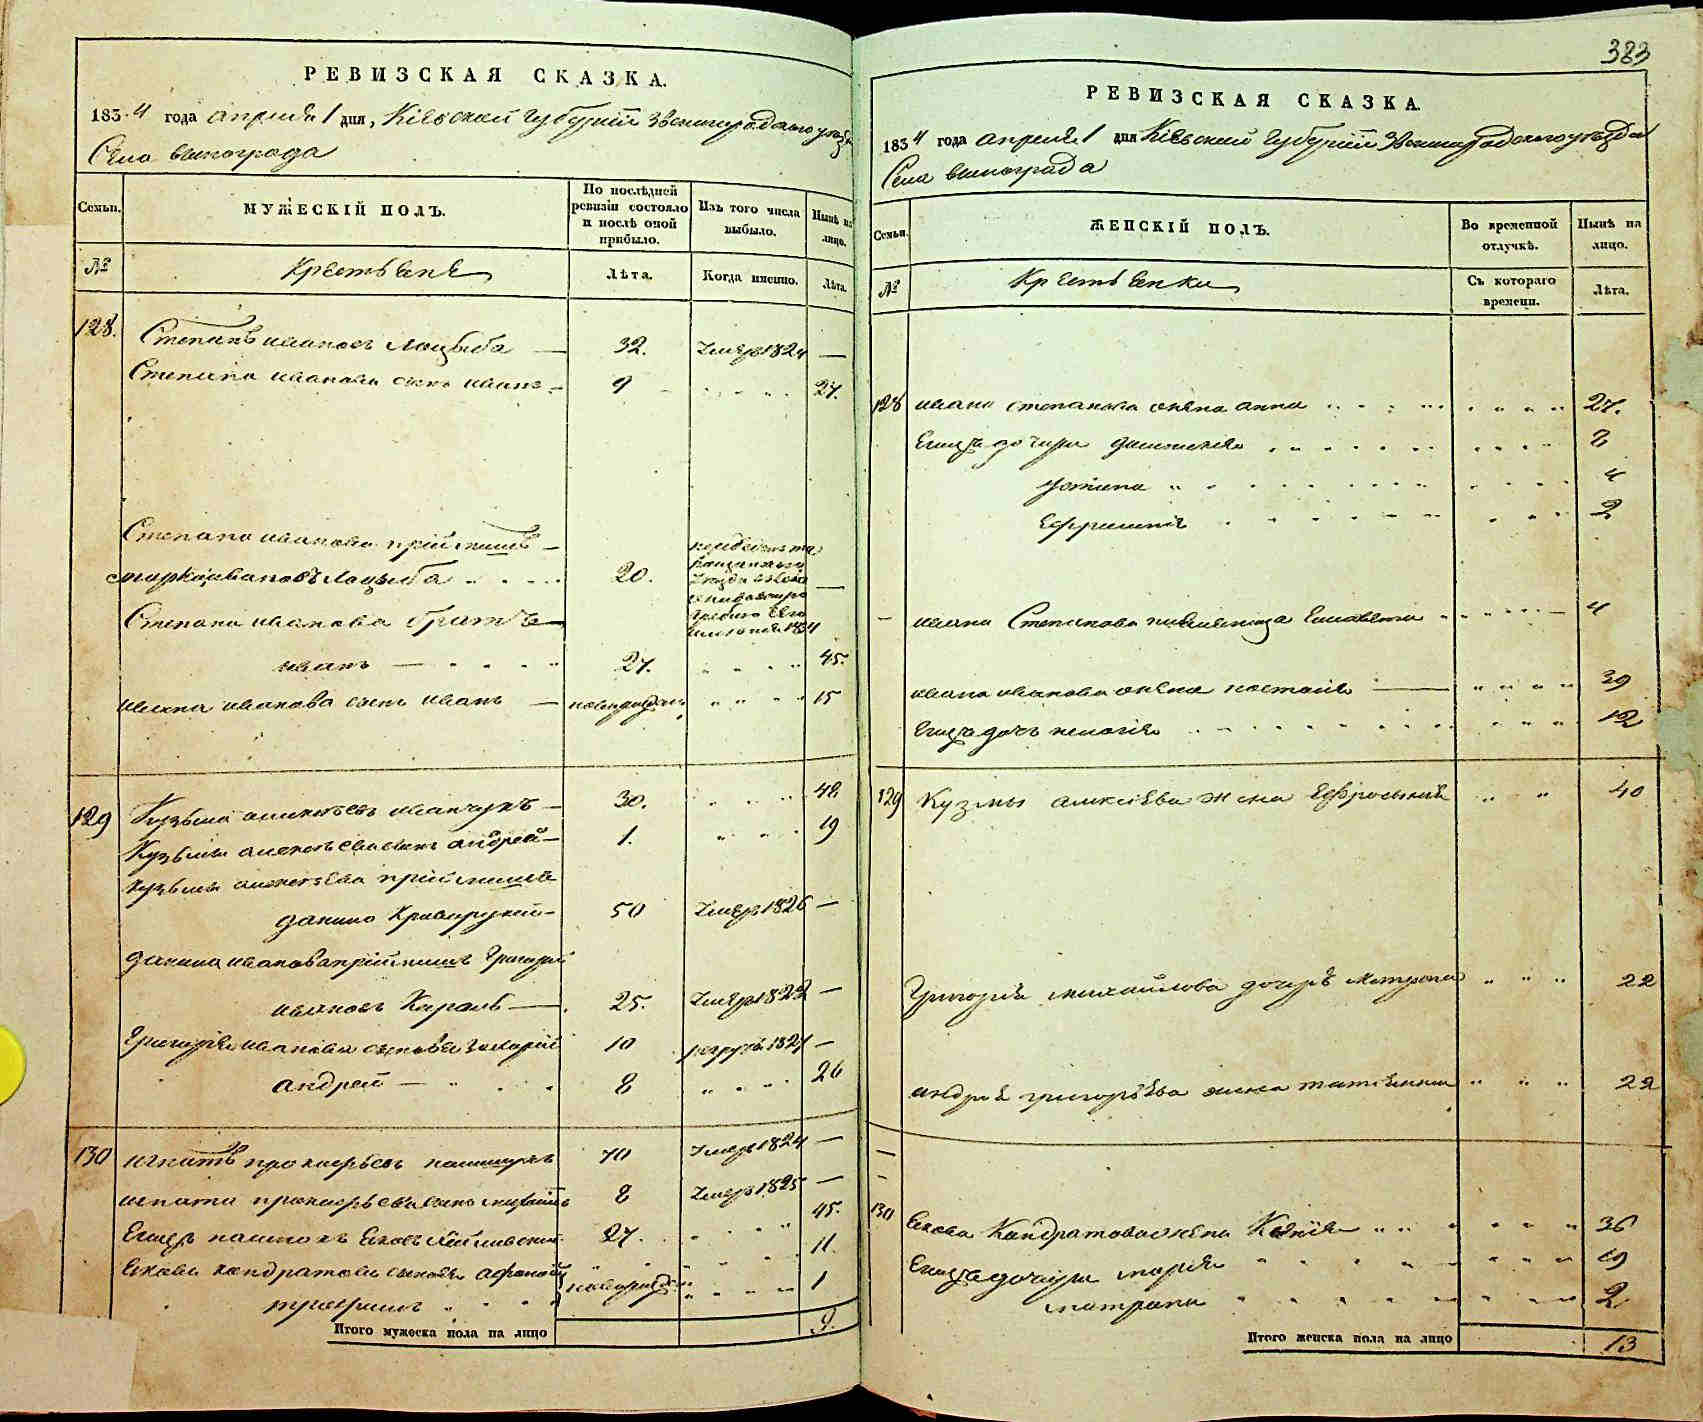 РЕВИЗСКАЯ СКАЗКА.
1834 года апреля 1 дня, Кіевской Губерніи Звенигородского уезда
Села винограда
Семьи.
МУЖЕСКІЙ ПОЛЪ.
По послѣдней ревизіи состояло и послѣ оной прибыло.
Изъ того числа выбыло.
Нынѣ на лицо.
№
Крестьяне
Лѣта.
Когда именно.
Лѣта.
128. Степанъ ивановъ 32. Умеръ 1824 —
Степана иванова сынъ иванъ 9 27.
Степана иванова пріймишъ —
марко ивановъ 20. —
Степана иванова братъ —
иванъ — 27. 45.
ивана иванова сынъ иванъ — новорожден 15
129 Кузьма алексѣевъ иванчукъ — 30. 48
Кузьмы алексѣева сынъ андрей — 1. 19
Кузьмы алексѣева пріймишъ
данило Криворукій — 50 Умеръ 1826 —
данила иванова пріймишъ Григорій
ивановъ Кароль — 25. Умеръ 1822 —
Григорія иванова сыновья захарій 10 рекрутъ 1827 —
андрей — 8 26
130 игнатъ прокофьевъ 70 Умеръ 1824 —
игната прокофьева сынъ 8 Умеръ 1825 —
Егожъ 27. 45.
Якова кондратова сыновья афанасій новорожд 11.
трофимъ 1
Итого мужеска пола на лицо 9.
383
РЕВИЗСКАЯ СКАЗКА.
1834 года апреля 1 дня Кіевской Губерніи Звенигородского уезда
Села винограда
Семьи.
ЖЕНСКІЙ ПОЛЪ.
Во временной отлучкѣ.
Нынѣ на лицо.
№
Крестьянки
Съ котораго времени.
Лѣта.
128 ивана степанова жена анна 27.
Егожъ дочери 8
Устина 4
Ефросинія 2
— ивана Степанова Елисавета 4
ивана иванова жена настасія — 39
Егожъ дочь пелагія 12
129 Кузмы алексіева жена Ефросинія 40
Григорія михайлова дочерь Матрона 22
андрея григорьева жена татіянна 22
130 Якова Кандратова жена Ксенія 36
Егожъ дочери марія 19
матрона 2
Итого женска пола на лицо 13